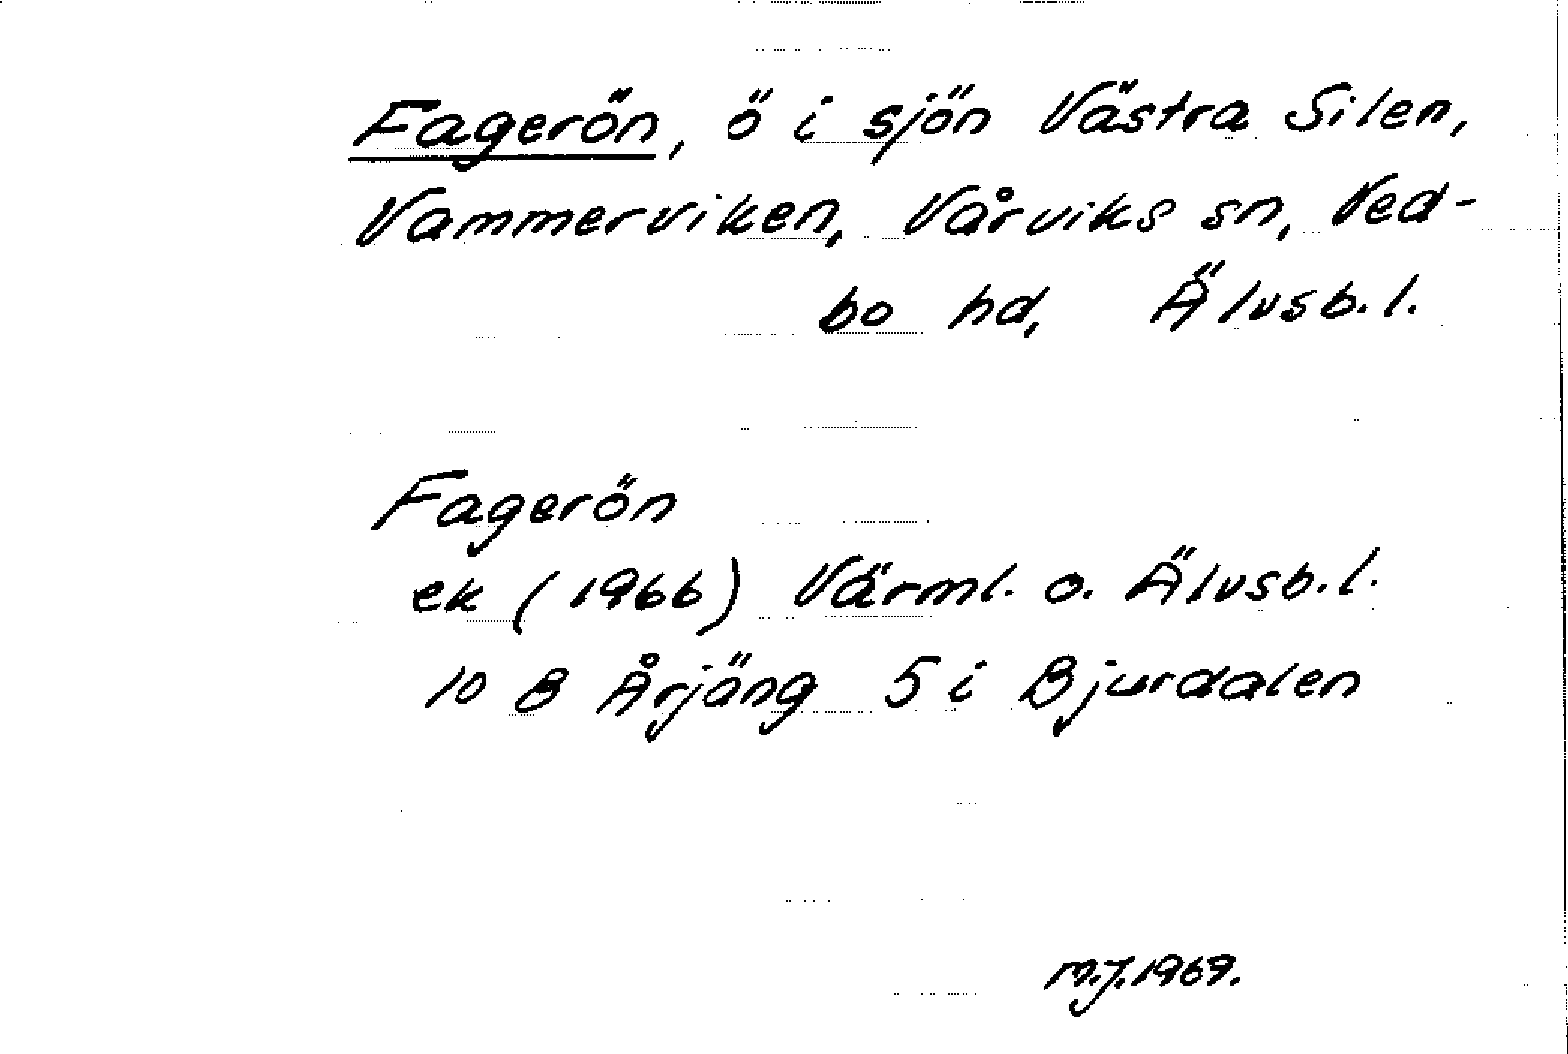 Fagerön, ö i sjön Västra Silen,
Vammerviken, Vårviks sn, Ved-
bo hd, Älvsb. l.
Fagerön
ek (1966) Värml. o. Älvsb. l.
10 B Årjäng 5 i Bjurdalen
M.J. 1969.